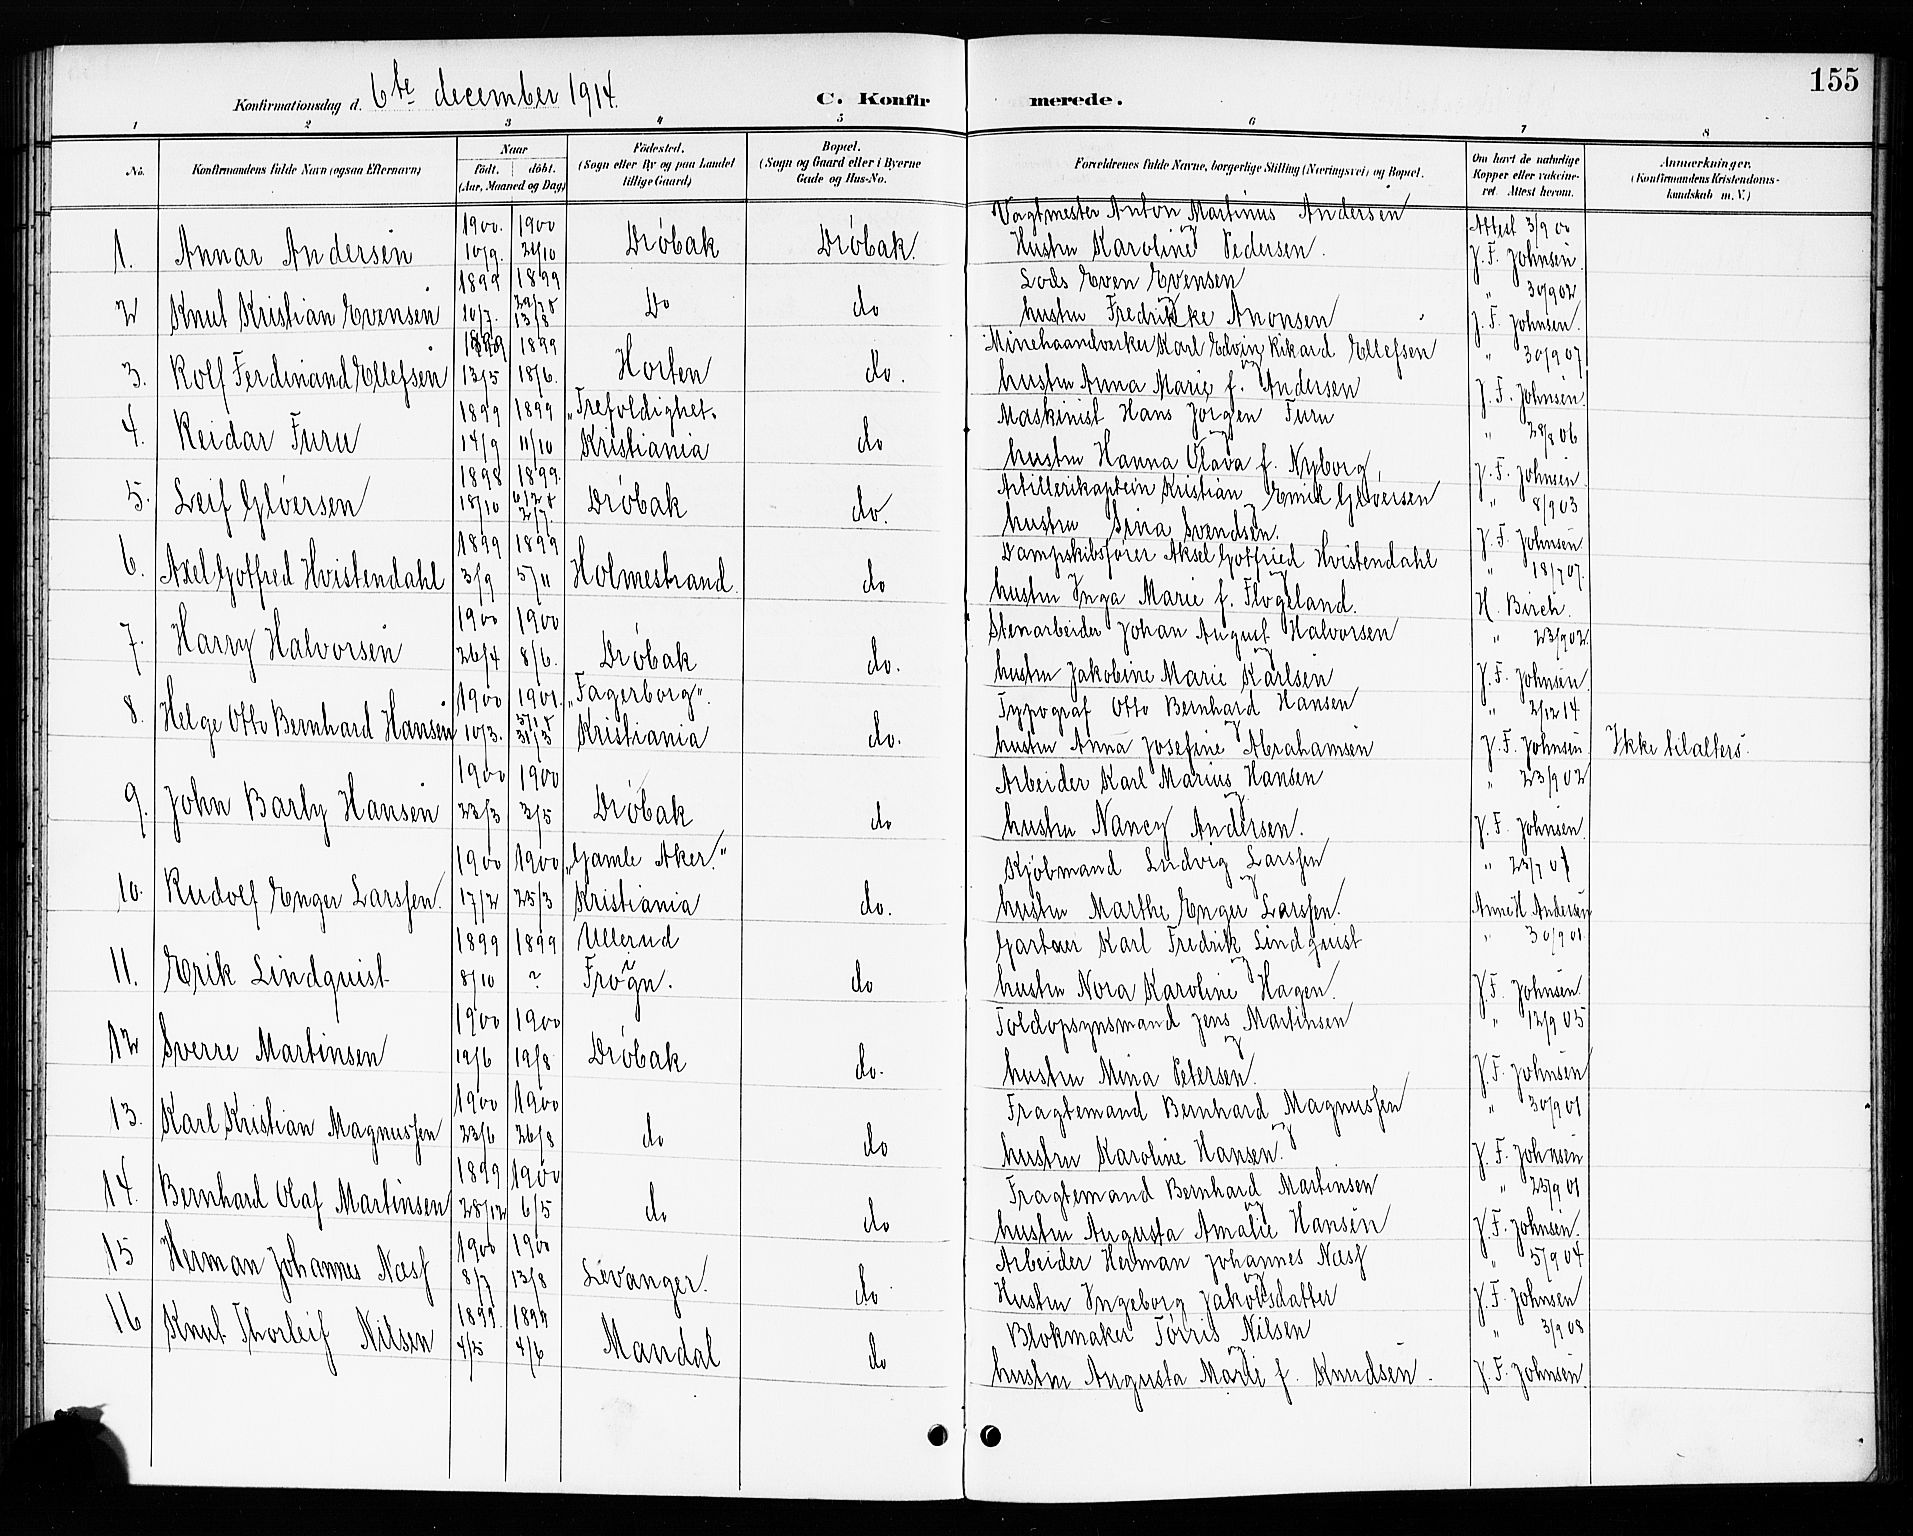 155
Konfirmationsdag d. 6te december 1914. C. Konfirmerede.
1 2 3 4 5 6 7 8
No. Konfirmandens fulde Navn (ogsaa Efternavn) Naar født. døbt. (Aar, Maaned og Dag) Fødested. (Sogn eller By og paa Landet tillige Gaard) Bopæl. (Sogn og Gaard eller i Byerne Gade og Hus-No. Forældrenes fulde Navne, borgerlige Stilling (Næringsvei) og Bopæl. Om havt de naturlige Kopper eller vakcineret. Attest herom. Anmærkninger. (Konfirmandens Kristendomskundskab m. V.)
1. Annar Andersen 1900. 10/9. 1900 21/10 Drøbak Drøbak. Vagtmester Anton Martinus Andersen Attest 3/9 00
Hustru Karoline Pedersen. J. F. Johnsen.
2 Knut Kristian Evensen 1899 10/7. 1899 13/8 Do do Lods Even Evensen " 30/9 02
hustru Fredrikke Anonsen J. F. Johnsen.
3. Rolf Ferdinand Ellefsen 1899 13/5 1899 18/6. Horten do. Minehaandverker Karl Edvin Rikard Ellefsen " 30/9 07
hustru Anna Marie f. Andersen J. F. Johnsen.
4. Reidar Furu 1899 14/9 1899 11/10 "Trefoldighet. Kristiania do Maskinist Hans Jørgen Furu " 28/8 06
hustru Hanna Olava f. Nyborg, J. F. Johnsen.
5. Leif Gløersen 1898 18/10 1899. 2/7. Drøbak do. Artillerikaptein Kristian Emil Gløersen " 8/9 03
hustru Sina Svendsen. J. F. Johnsen
6. Axel Gotfred Hvistendahl 1899 3/9 1899 5/11 Holmestrand. do Dampskibsfører Aksel Gotfried Hvistendahl " 18/7 07.
hustru Inga Marie f. Flogeland. H. Birch.
7. Harry Halvorsen 1900 26/4 1900 8/6. Drøbak do. Stenarbeider Johan August Halvorsen " 23/9 02.
hustru Jakobine Marie Karlsen J. F. Johnsen.
8. Helge Otto Bernhard Hansen 1900 10/3. 1901. 31/3 "Fagerborg". Kristiania do. Typograf Otto Bernhard Hansen " 2/12 14
hustru Anna Josefine Abrahamsen J. F. Johnsen Ikke tilalters.
9. John Barly Hansen 1900 23/3 1900 3/5 Drøbak do Arbeider Karl Marius Hansen " 23/9 02
hustru Nancy Andersen. J. F. Johnsen.
10. Rudolf Enger Larssen. 1900 17/2 1900 25/3 "Gamle Aker." Kristiania do. Kjøbmand Ludvig Larssen " 23/7 01
hustru Marthe Enger Larssen. Anne H Andersen
11. Erik Lindquist 1899 8/10 1899 ? Ullerud Frogn. do Gartner Karl Fredrik Lindquist " 30/9 01
hustru Nora Karoline Hagen. J. F. Johnsen.
12 Sverre Martinsen 1900 19/6 1900 19/8 Drøbak do. Toldopsynsmand Jens Martinsen " 12/9 05
hustru Mina Petersen. J. F. Johnsen
13. Karl Kristian Magnussen 1900 23/6 1900 26/8 do do Fragtemand Bernhard Magnussen " 30/9 01
hustru Karoline Hansen. J. F. Johnsen
14. Bernhard Olaf Martinsen 1899 28/12 1900 6/5 do do Fragtemand Bernhard Martinsen " 25/9 01
hustru Augusta Amalie Hansen J. F. Johnsen.
15 Herman Johannes Næss 1900 8/7 1900 13/8 Levanger. do Arbeider Herman Johannes Næss " 5/9 04
Hustru Ingeborg Jakobsdatter J. F. Johnsen
16 Knut Thorleif Nilsen 1899. 4/5 1899 4/6 Mandal do Blokmaker Tørris Nilsen " 3/9 08
hustru Augusta Marie f. Knudsen. J. F. Johnsen.